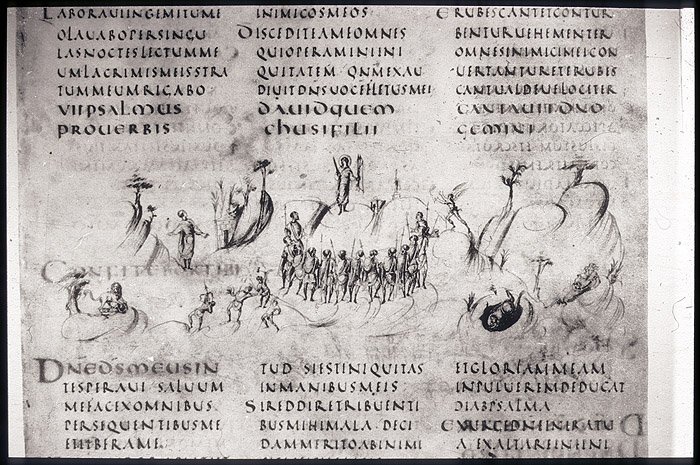 LABORAUIINGEMITUME
OLAUABOPERSINGU
LASNOCTESLECTUMME
UMLACRIMISMEISSTRA
TUMMEUMRIGABO
INIMICOSMEOS
DISCEDITEAMEOMNES
QUIOPERAMINIINI
QUITATEM QNMEXAU
DIUITDNSUOCEFLETUSMEI
ERUBESCANTETCONTUR
BENTURUEHEMENTER
OMNESINIMICIMEICON
UERTANTURETERUBES
CANTUALDEUELOCITER
VIIPSALMUS DAUIDQUEM CANTAUITDNO
PROUERBIS CHUSIFILII GEMINI
DNEDSMEUSIN
TESPERAUI SALUUM
MEFACEXOMNIBUS
PERSEQUENTIBUSME
ETLIBERAME
TUD SIESTINIQUITAS
INMANIBUSMEIS
SIREDDIRETRIBUENTI
BUSMIHIMALA DECI
DAMMERITOABINIMI
ETGLORIAMMEAM
INPULUEREMDEDUCAT
DIABPSALMA
EXURGEDNEINIRATU
A EXALTAREINFINI